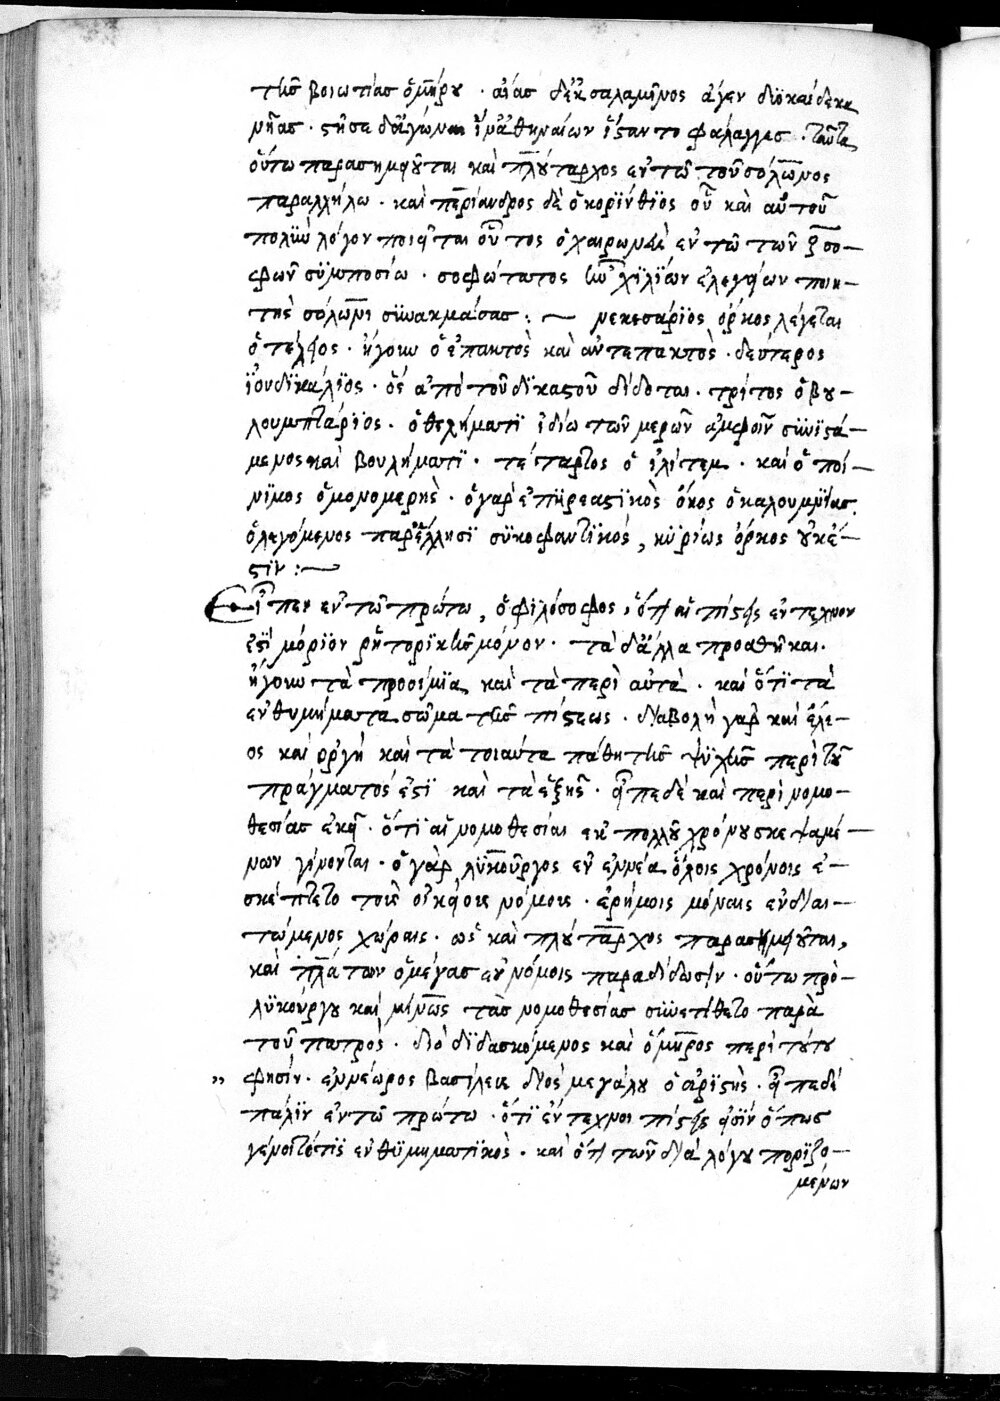 τῆς βοιωτίας ὁμήρου · αἴας δ' ἐκ σαλαμῖνος ἄγεν δϋοκαίδεκα
νῆας · στῆσε δ' ἄγων ἵν' ἀθηναίων ἵσταντο φάλαγγες · ταῦτα
οὕτω παρασημειοῦται καὶ πλούταρχος ἐν τῶ τοῦ σόλωνος
παραλλήλω · καὶ περίανδρος δὲ ὁ κορίνθϊος οὗ καὶ αὐτοῦ
πολὺν λόγον ποιεῖται οὗτος ὁ χαιρωνεὺς ἐν τῶ τῶν ζ σο–
φῶν σϋμποσίω · σοφώτατος τῶν χϊλϊων ἐλεγείων ποιη–
τὴς σόλωνι σϋνακμάσας :~ νεκεσάρϊος ὅρκος λέγεται
ὁ τέλειος · ἤγουν ὁ ἐπακτὸς καὶ ἀντεπακτὸς · δεύτερος
ἰουδϊκάλϊος · ὃς ἀπὸ τοῦ δϊκαστοῦ δίδοται · τρίτος ὁ βου–
λουμπτάρϊος · ὁ θελήματϊ ἰδίω τῶν μερῶν ἀμφοῖν σϋνϊστά–
μενος καὶ βουλήματϊ · τέταρτος ὁ ἰλίτεμ · καὶ ὁ ποί–
νϊμος ὁ μονομερής · ὁ γὰρ ἐπηρεαστϊκὸς ὅρκος ὁ καλουμνίας
ὁ λεγόμενος παρ' ἕλλησϊ σϋκοφαντϊκός, κϋρίως ὅρκος οὐκ ἔ–
στϊν :~
Εἶπεν ἐν τῶ πρώτω, ὁ φϊλόσοφος, ὅτι αἱ πίστεις ἔντεχνον
ἐστϊ μόρϊον ῥητορϊκῆς μόνον · τὰ δ' ἄλλα προσθῆκαι ·
ἤγουν τὰ προοίμϊα καὶ τὰ περὶ αὐτὰ · καὶ ὅτϊ τὰ
ἐνθυμήματα σῶμα τῆς πίστεως · δϊαβολὴ γὰρ καὶ ἔλε–
ος καὶ ὀργὴ καὶ τὰ τοιαῦτα πάθη τῆς ψϋχῆς περὶ τοῦ
πράγματός ἐστϊ καὶ τὰ ἑξῆς · εἶπε δὲ καὶ περὶ νομο–
θεσίας ἐκεῖ · ὅτϊ αἱ νομοθεσίαι ἐκ πολλοῦ χρόνου σκεψαμέ–
νων γίνονται · ὁ γὰρ λϋκοῦργος ἐν ἐννέα ὅλοις χρόνοις ἐ–
σκέπτετο τοῖς οἰκείοις νόμοις · ἐρήμοις μόναις ἐνδϊαι–
τώμενος χώραις · ὡς καὶ πλούταρχος παρασημειοῦται,
καὶ πλάτων ὁ μέγας ἐν νόμοις παραδίδωσϊν · οὕτω πρὸ–
λϋκούργου καὶ μίνως τὰς νομοθεσίας σϋνετίθετο παρὰ
τοῦ πατρὸς · δϊὸ δϊδασκόμενος καὶ ὅμηρος περὶ τούτου
„ φησίν · ἐννέωρος βασίλευε δϊὸς μεγάλου ὀαρϊστὴς · εἶπε δὲ
πάλϊν ἐν τῶ πρώτω · ὅτϊ ἔντεχνοι πίστεις εἰσϊν ὅπως
γένοιτό τϊς ἐνθϋμηματϊκὸς · καὶ ὅτι τῶν δϊὰ λόγου πορϊζο–
μένων